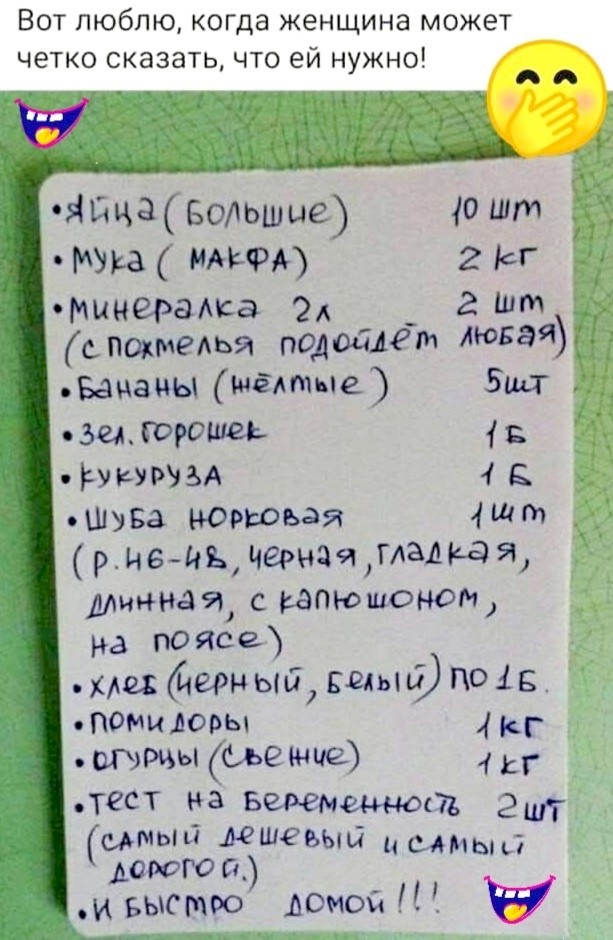 Вот люблю, когда женщина может
четко сказать, что ей нужно!
•Яйца (Большие) 10 шт
•Мука (МАКФА) 2 кг
•Минералка 2л 2 шт
(с похмелья подойдёт любая)
•Бананы (жёлтые) 5шт
•Зел. горошек 1 Б
•Кукуруза 1 Б
•Шуба норковая 1шт
(р.46-48, черная, гладкая,
длинная, с капюшоном,
на поясе)
•хлеб (черный, белый) по 1Б.
•помидоры 1кг
•огурцы (свежие) 1кг
•тест на беременность 2шт
(самый дешевый и самый
дорогой.)
•И быстро домой!!!